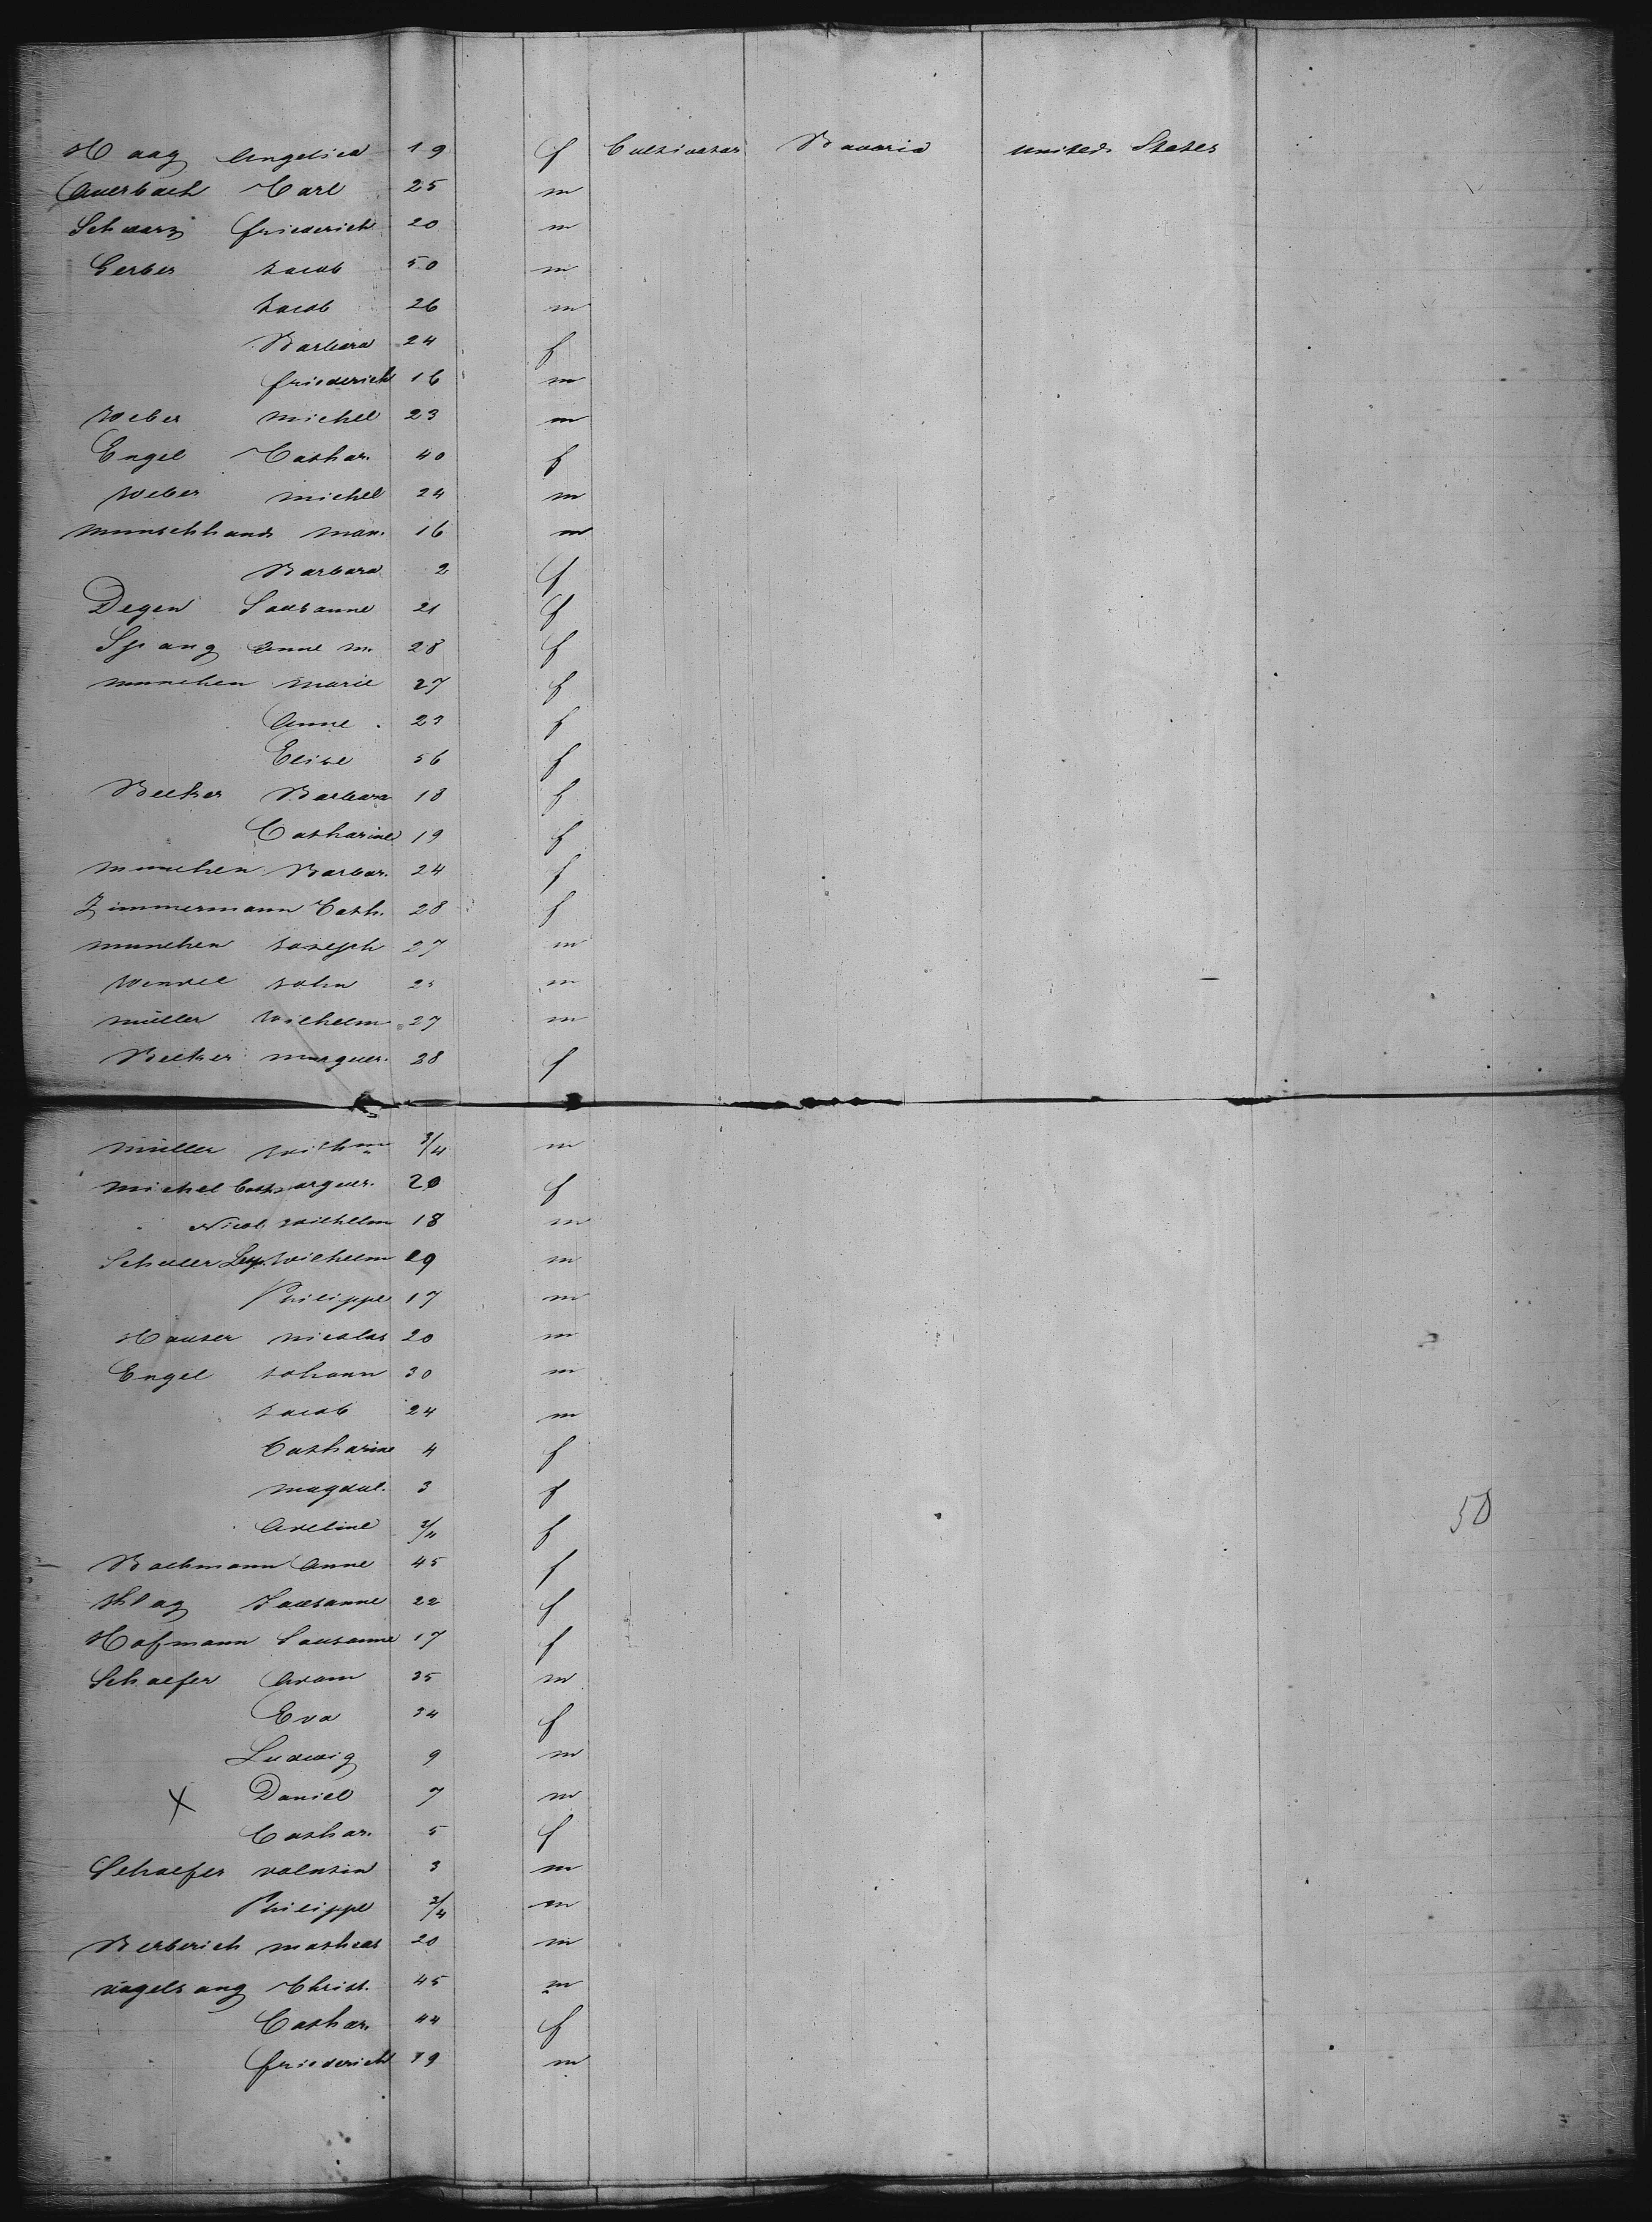 Haag Angelica 19 f Cultivator Bavaria United States
Auerbach Carl 25 m
Schwarz Friederich 20 m
Gerber Jacob 50 m
Jacob 26 m
Barbara 24 f
Friederich 16 m
Weber Michel 23 m
Engel Cathar. 40 f
Weber Michel 24 m
Munschhand Man. 16 m
Barbara 2 f
Degen Sausanne 21 f
Spang Anne M. 28 f
Munchen Marie 27 f
Anne 23 f
Elise 56 f
Becker Barbara 18 f
Catharine 19 f
Munchen Barbar. 24 f
Zimmermann Cath. 28 f
Munchen Joseph 27 m
Wendel John m
Müller Wilhelm 27 m
Becker Marguer. 28 f
Müller Wilhm 3/4 m
Michel Cath arguer. 20 f
Nicol Wilhelm 18 m
Schuler Wilhelm 29 m
Philippe 17 m
Hauser Nicolas 20 m
Engel Johann 30 m
Jacob 24 m
Catharine 4 f
Magdal. 3 f
Adeline 3/4 f
Bachmann Anne 45 f
Sausanne 22 f
Hofmann Sausanne 17 f
Schaefer Adam 35 m
Eva 34 f
Ludwig 9 m
X Daniel 7 m
Cathar. 5 f
Schaefer Valentin 3 m
Philippe 3/4 m
Berberich Matheas 20 m
Vogelsang Christ. 45 m
Cathar. 44 f
Friederich 19 m
50